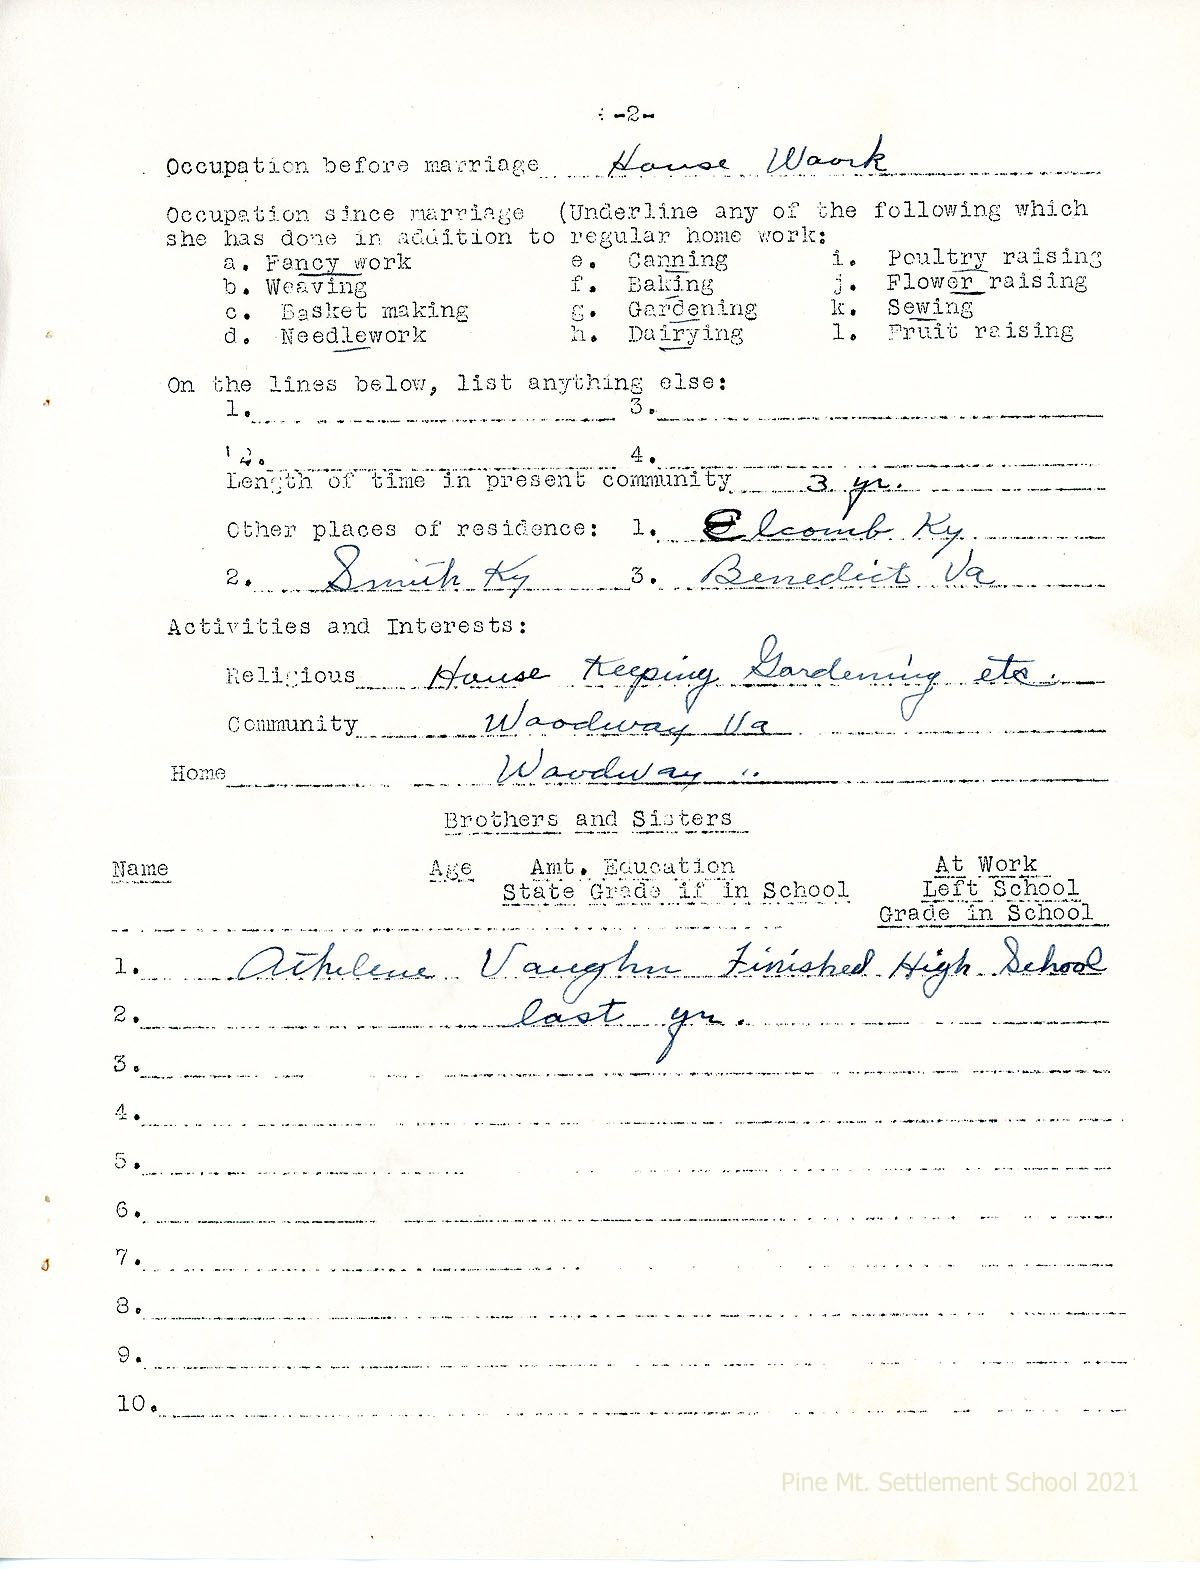 -2-
Occupation before marriage House Woork
Occupation since marriage (Underline any of the following which
she has done in addition to regular home work:
a. Fancy work e. Canning i. Poultry raising
b. Weaving f. Baking j. Flower raising
c. Basket making g. Gardening k. Sewing
d. Needlework h. Dairying l. Fruit raising
On the lines below, list anything else:
1. 3.
2. 4.
Length of time in present community 3 yr.
Other places of residence: 1. Elcomb Ky
2. Smith Ky 3. Benedict Va
Activities and Interests:
Religious House Keeping Gardening etc.
Community Woodway Va
Home Woodway "
Brothers and Sisters
Name Age Amt. Education At Work
State Grade if in School Left School
Grade in School
1. Athelene Vaughn Finished High School
2. last yr.
3.
4.
5.
6.
7.
8.
9.
10.
Pine Mt. Settlement School 2021